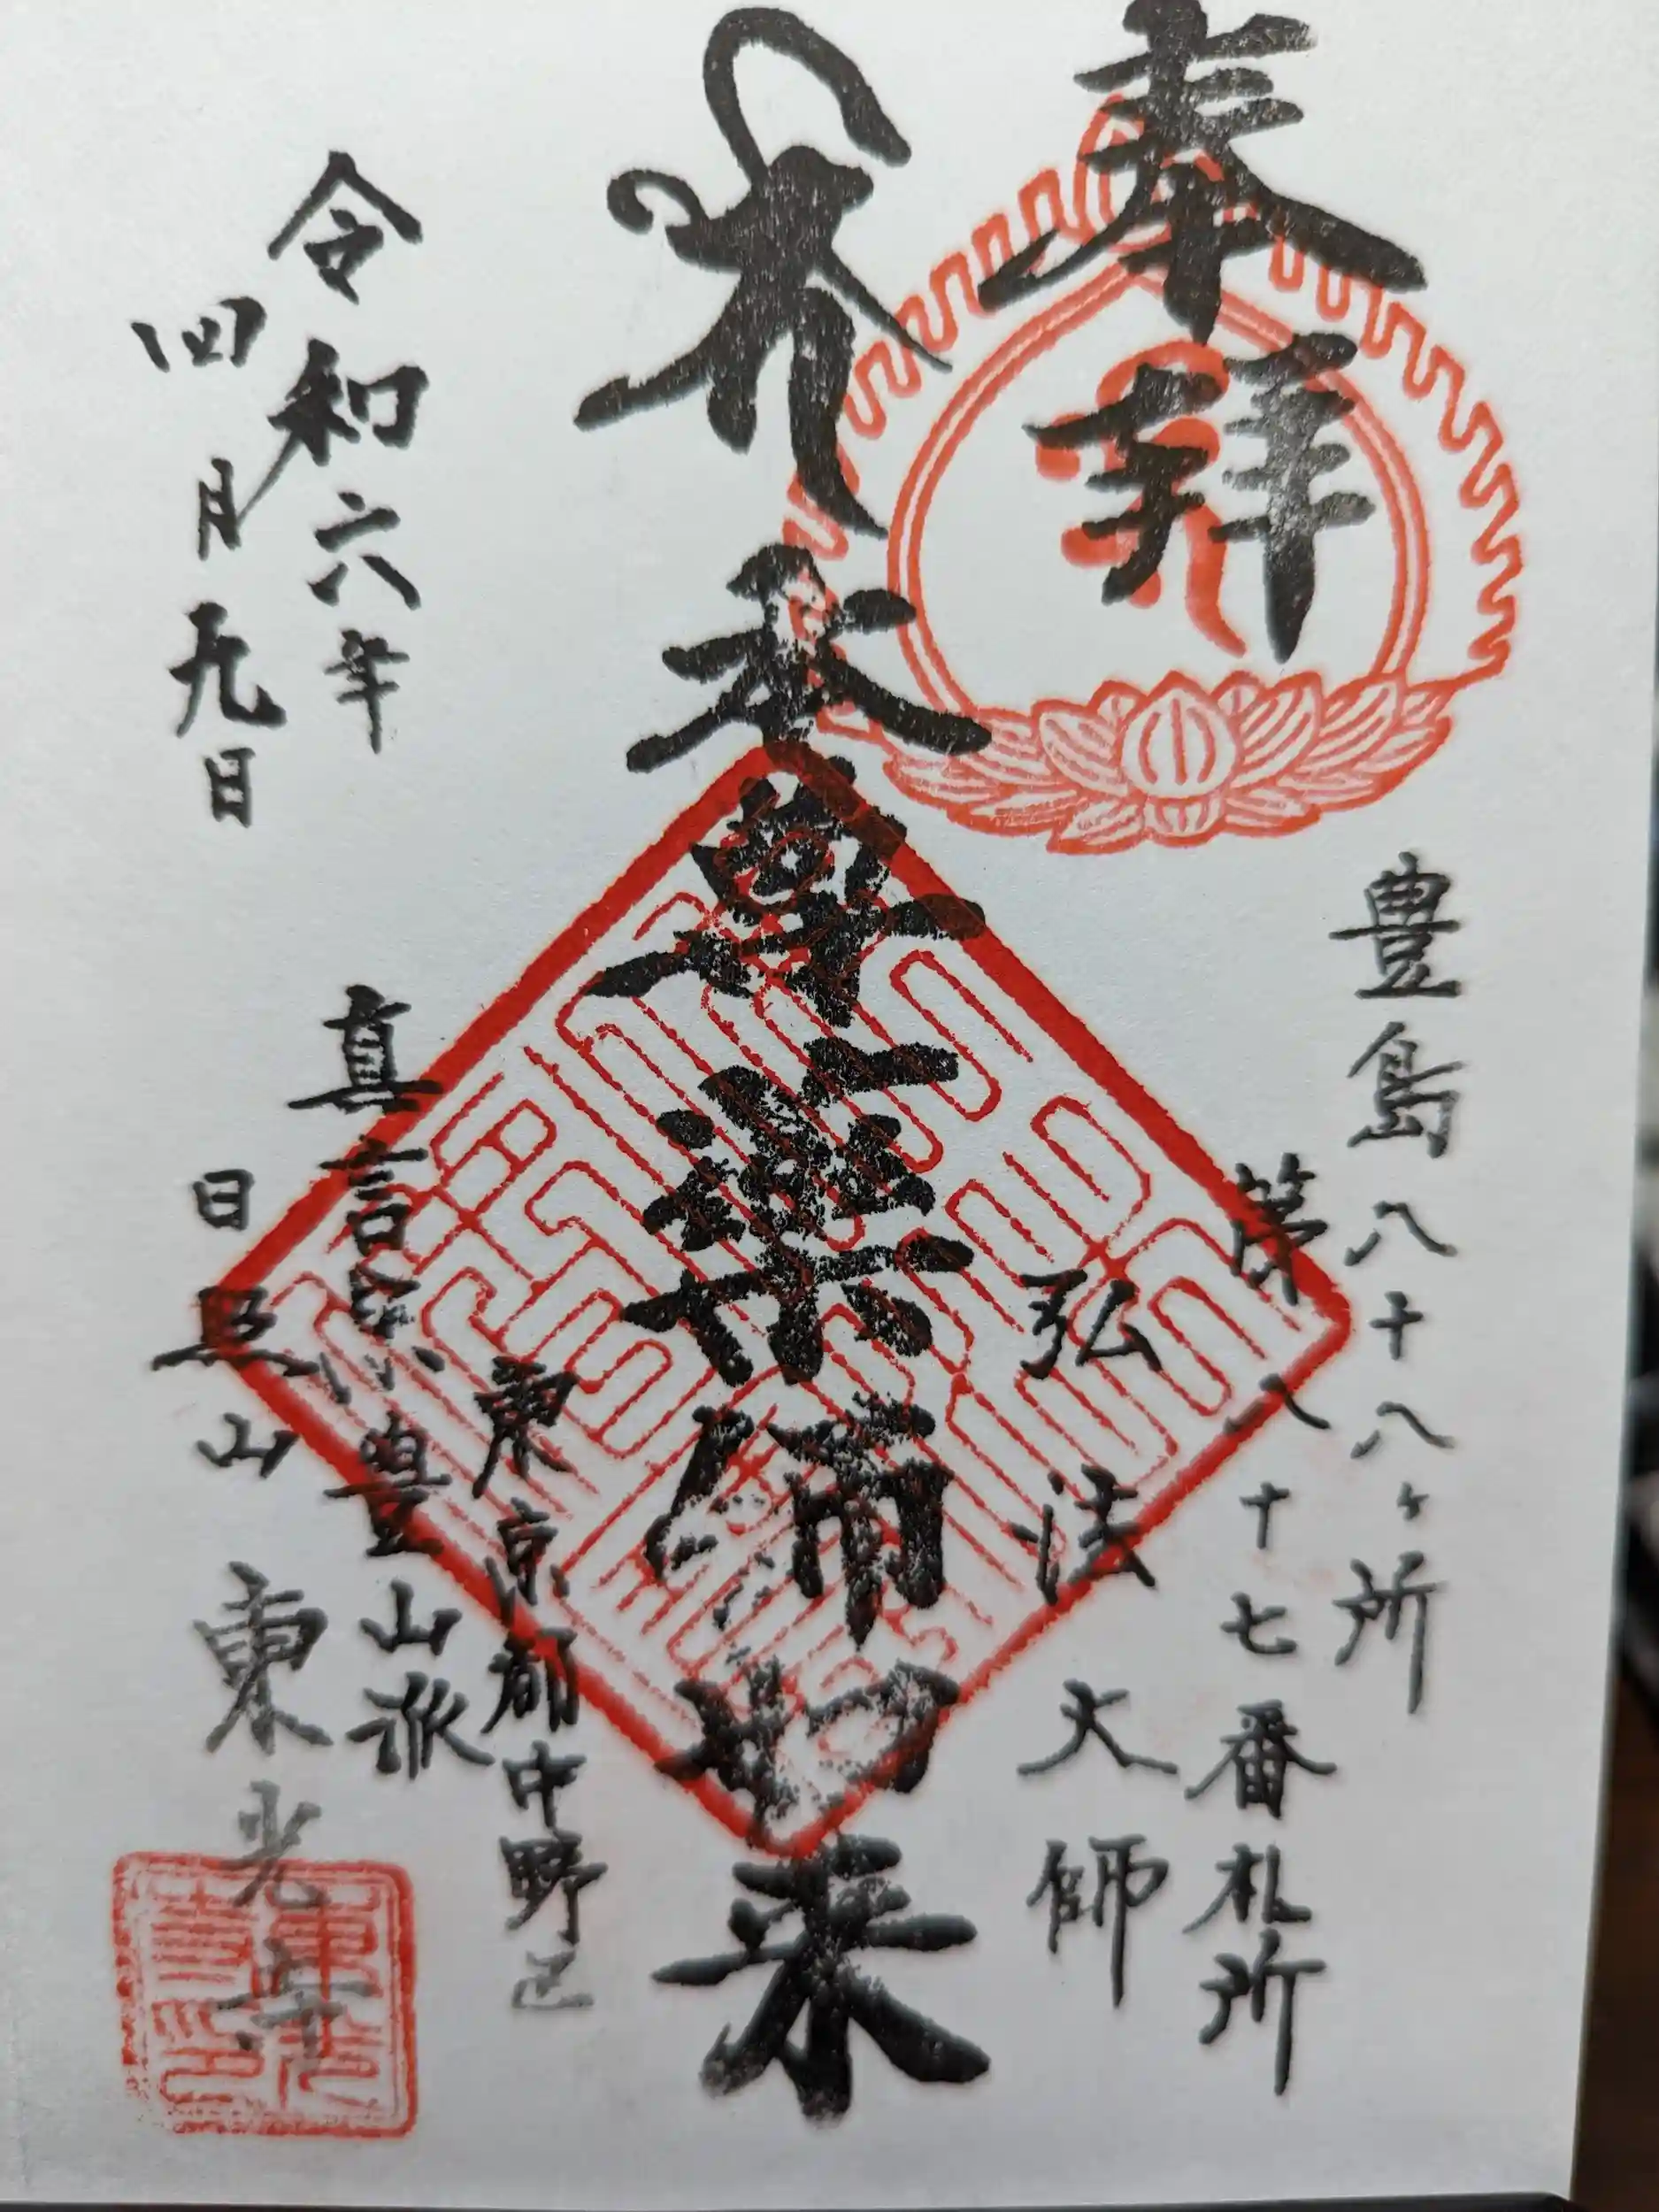 奉拝
豊島八十八ヶ所
第八十七番札所
弘法大師
本尊薬師如来
東京都中野区
真言宗豊山派
令和六年
四月九日
日照山東光寺